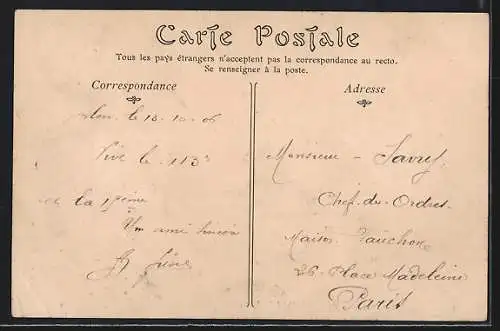 Carte Postale
Tous les pays étrangers n'acceptent pas la correspondance au recto.
Se renseigner à la poste.
Correspondance
le 10-10-06
Vive le 113
et la
Un ami sincère
Adresse
Monsieur - Savry
Chef-de-Ordres
Maison Fauchon
26 - Place Madeleine
Paris